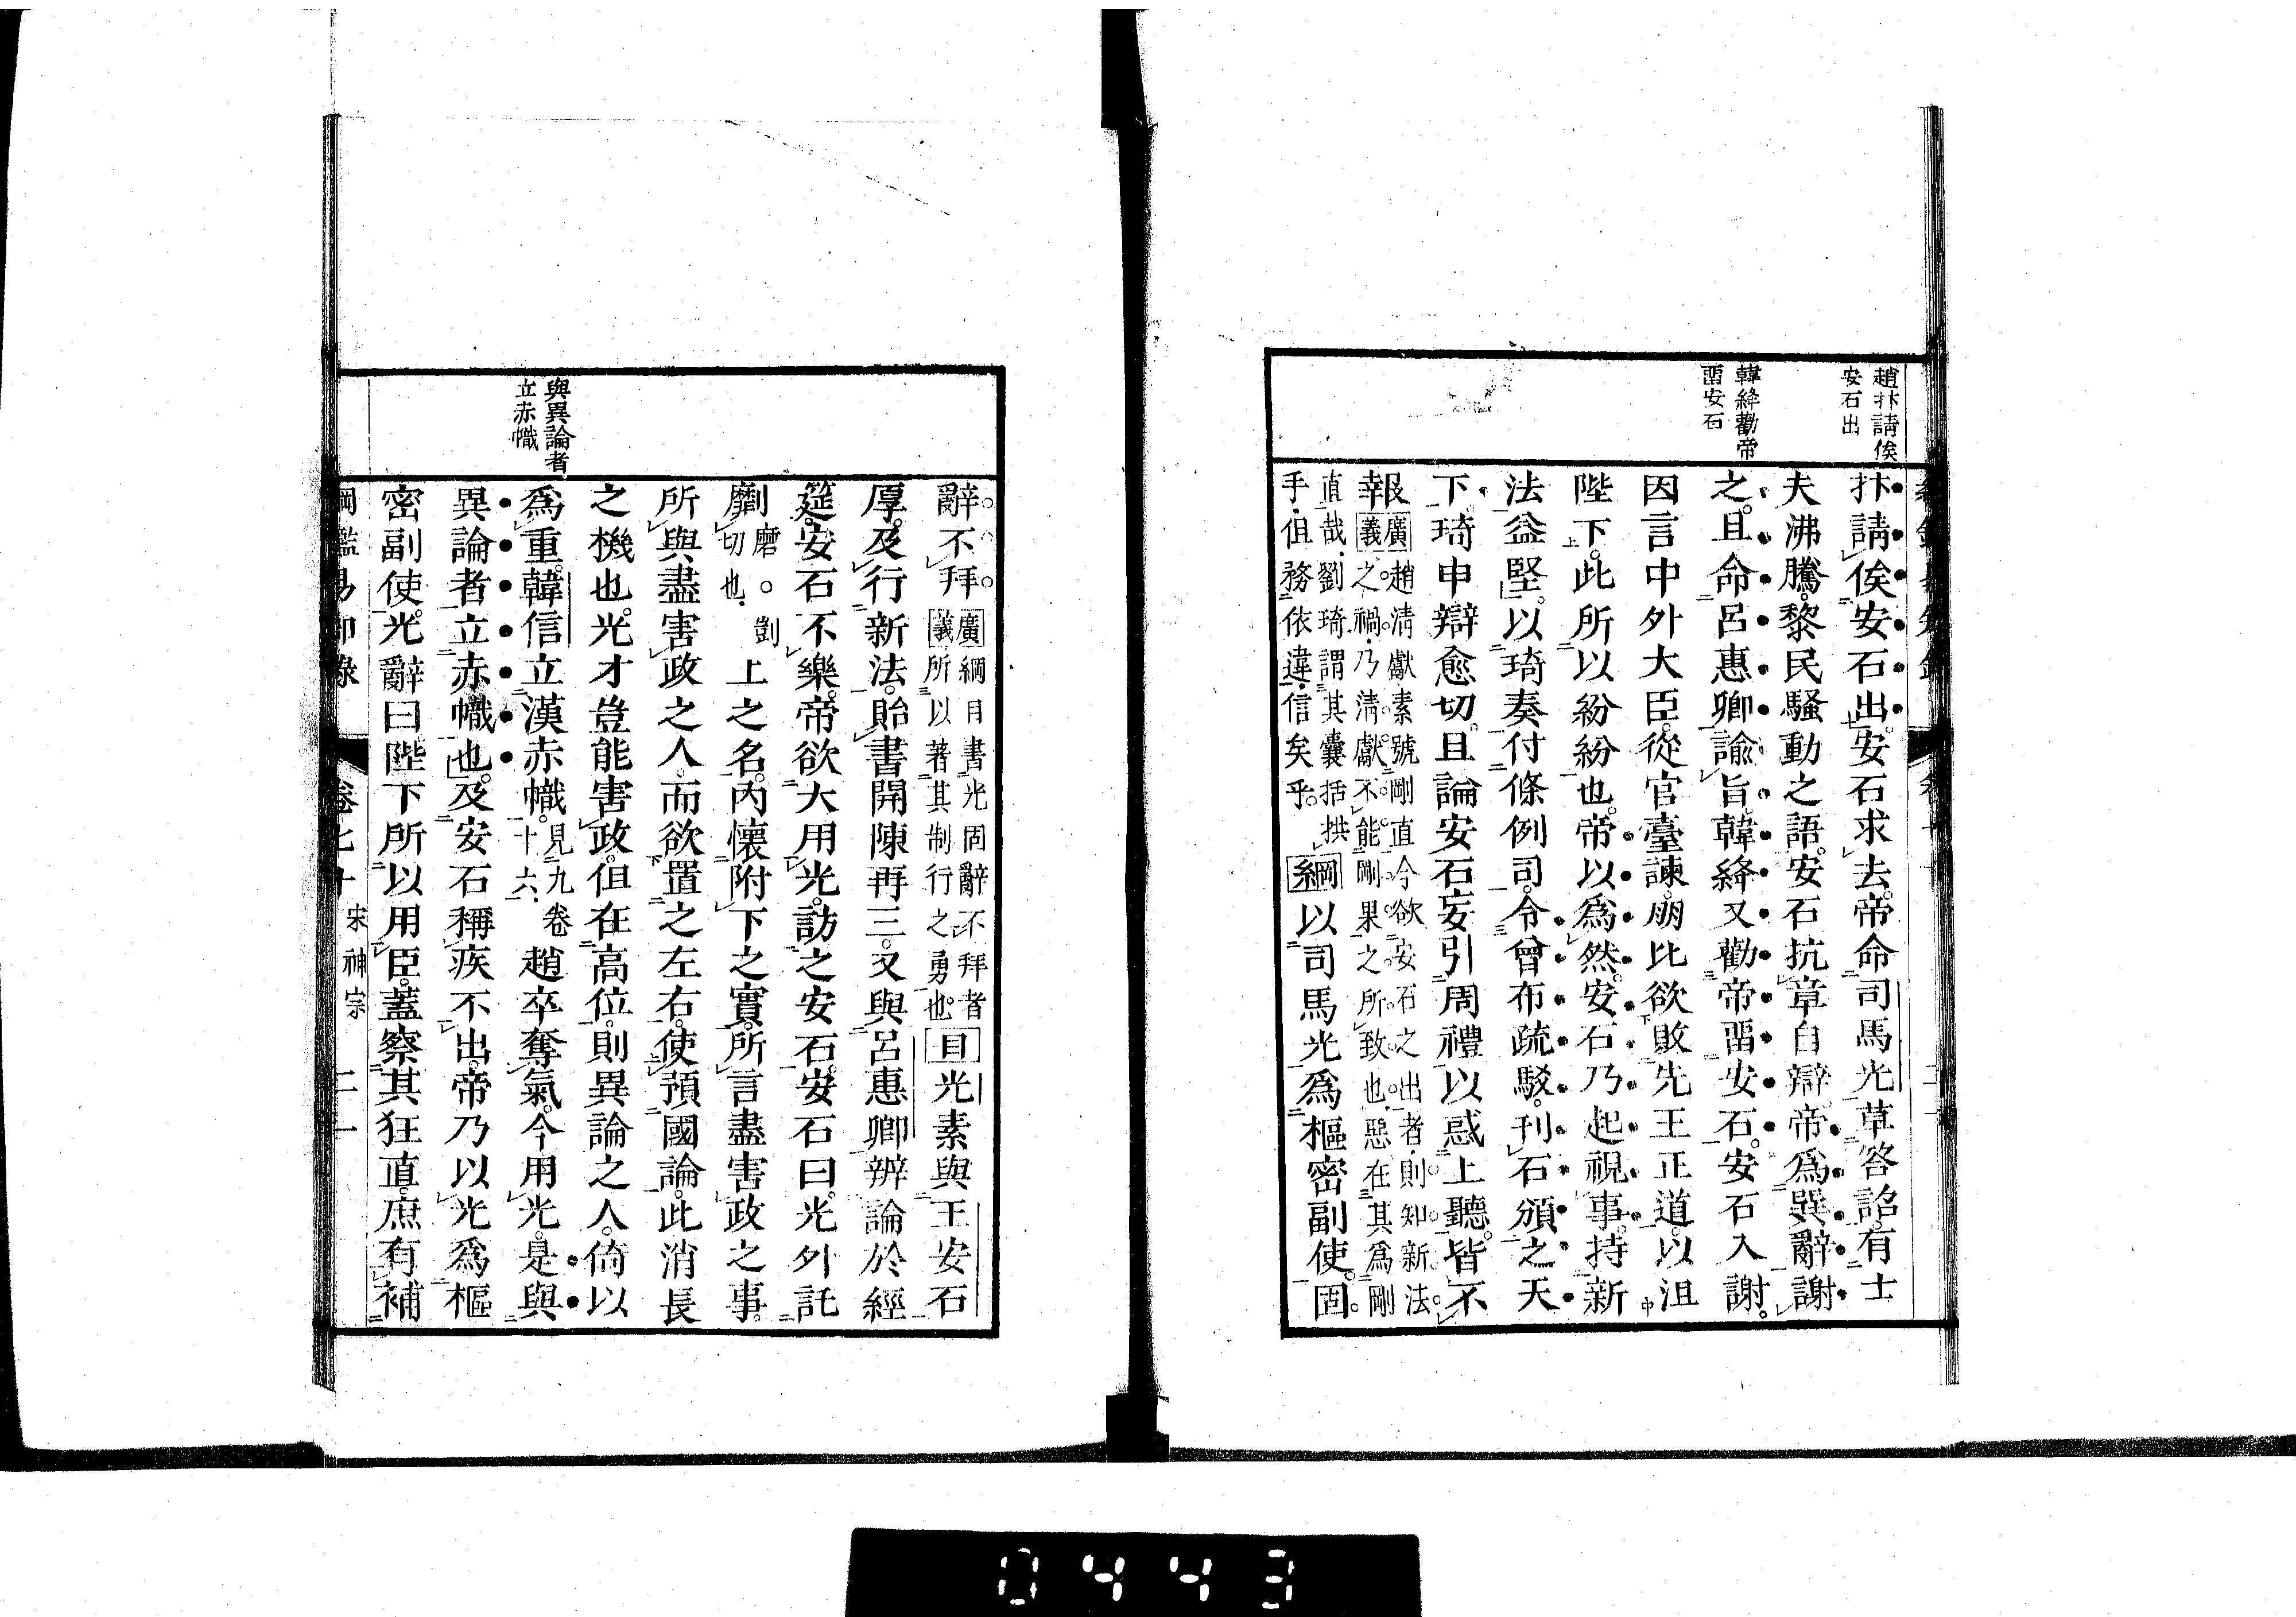 趙抃請俟
安石出
韓絳勸帝
畱安石
抃請俟安石出安石求去帝命司馬光草答詔有士
夫沸騰黎民騷動之語安石抗章自辯帝爲巽辭謝
之且命呂惠卿諭旨韓絳又勸帝畱安石安石入謝
因言中外大臣從官臺諫朋比欲敗先王正道以沮
陛下此所以紛紛也帝以爲然安石乃起視事持新
法益堅以琦奏付條例司令曾布疏駁刊石頒之天
下琦申辯愈切且論安石妄引周禮以惑上聽皆不
報
廣義
趙淸獻素號剛直今欲安石之出者則知新法
之禍乃淸獻不能剛果之所致也惡在其爲剛
直哉劉琦謂其囊括拱
手但務依違信矣乎
綱以司馬光爲樞密副使固
與異論者
立赤幟
辭不拜
廣義
綱目書光固辭不拜者
所以著其制行之勇也
目光素與王安石
厚及行新法貽書開陳再三又與呂惠卿辨論於經
筵安石不樂帝欲大用光訪之安石安石曰光外託
劘
磨剴
切也
上之名內懷附下之實所言盡害政之事
所與盡害政之人而欲置之左右使預國論此消長
之機也光才豈能害政但在高位則異論之人倚以
爲重韓信立漢赤幟
見九卷
十六
趙卒奪氣今用光是與
異論者立赤幟也及安石稱疾不出帝乃以光爲樞
密副使光辭曰陛下所以用臣蓋察其狂直庶有補
綱鑑易知錄
卷七十
宋神宗
二一